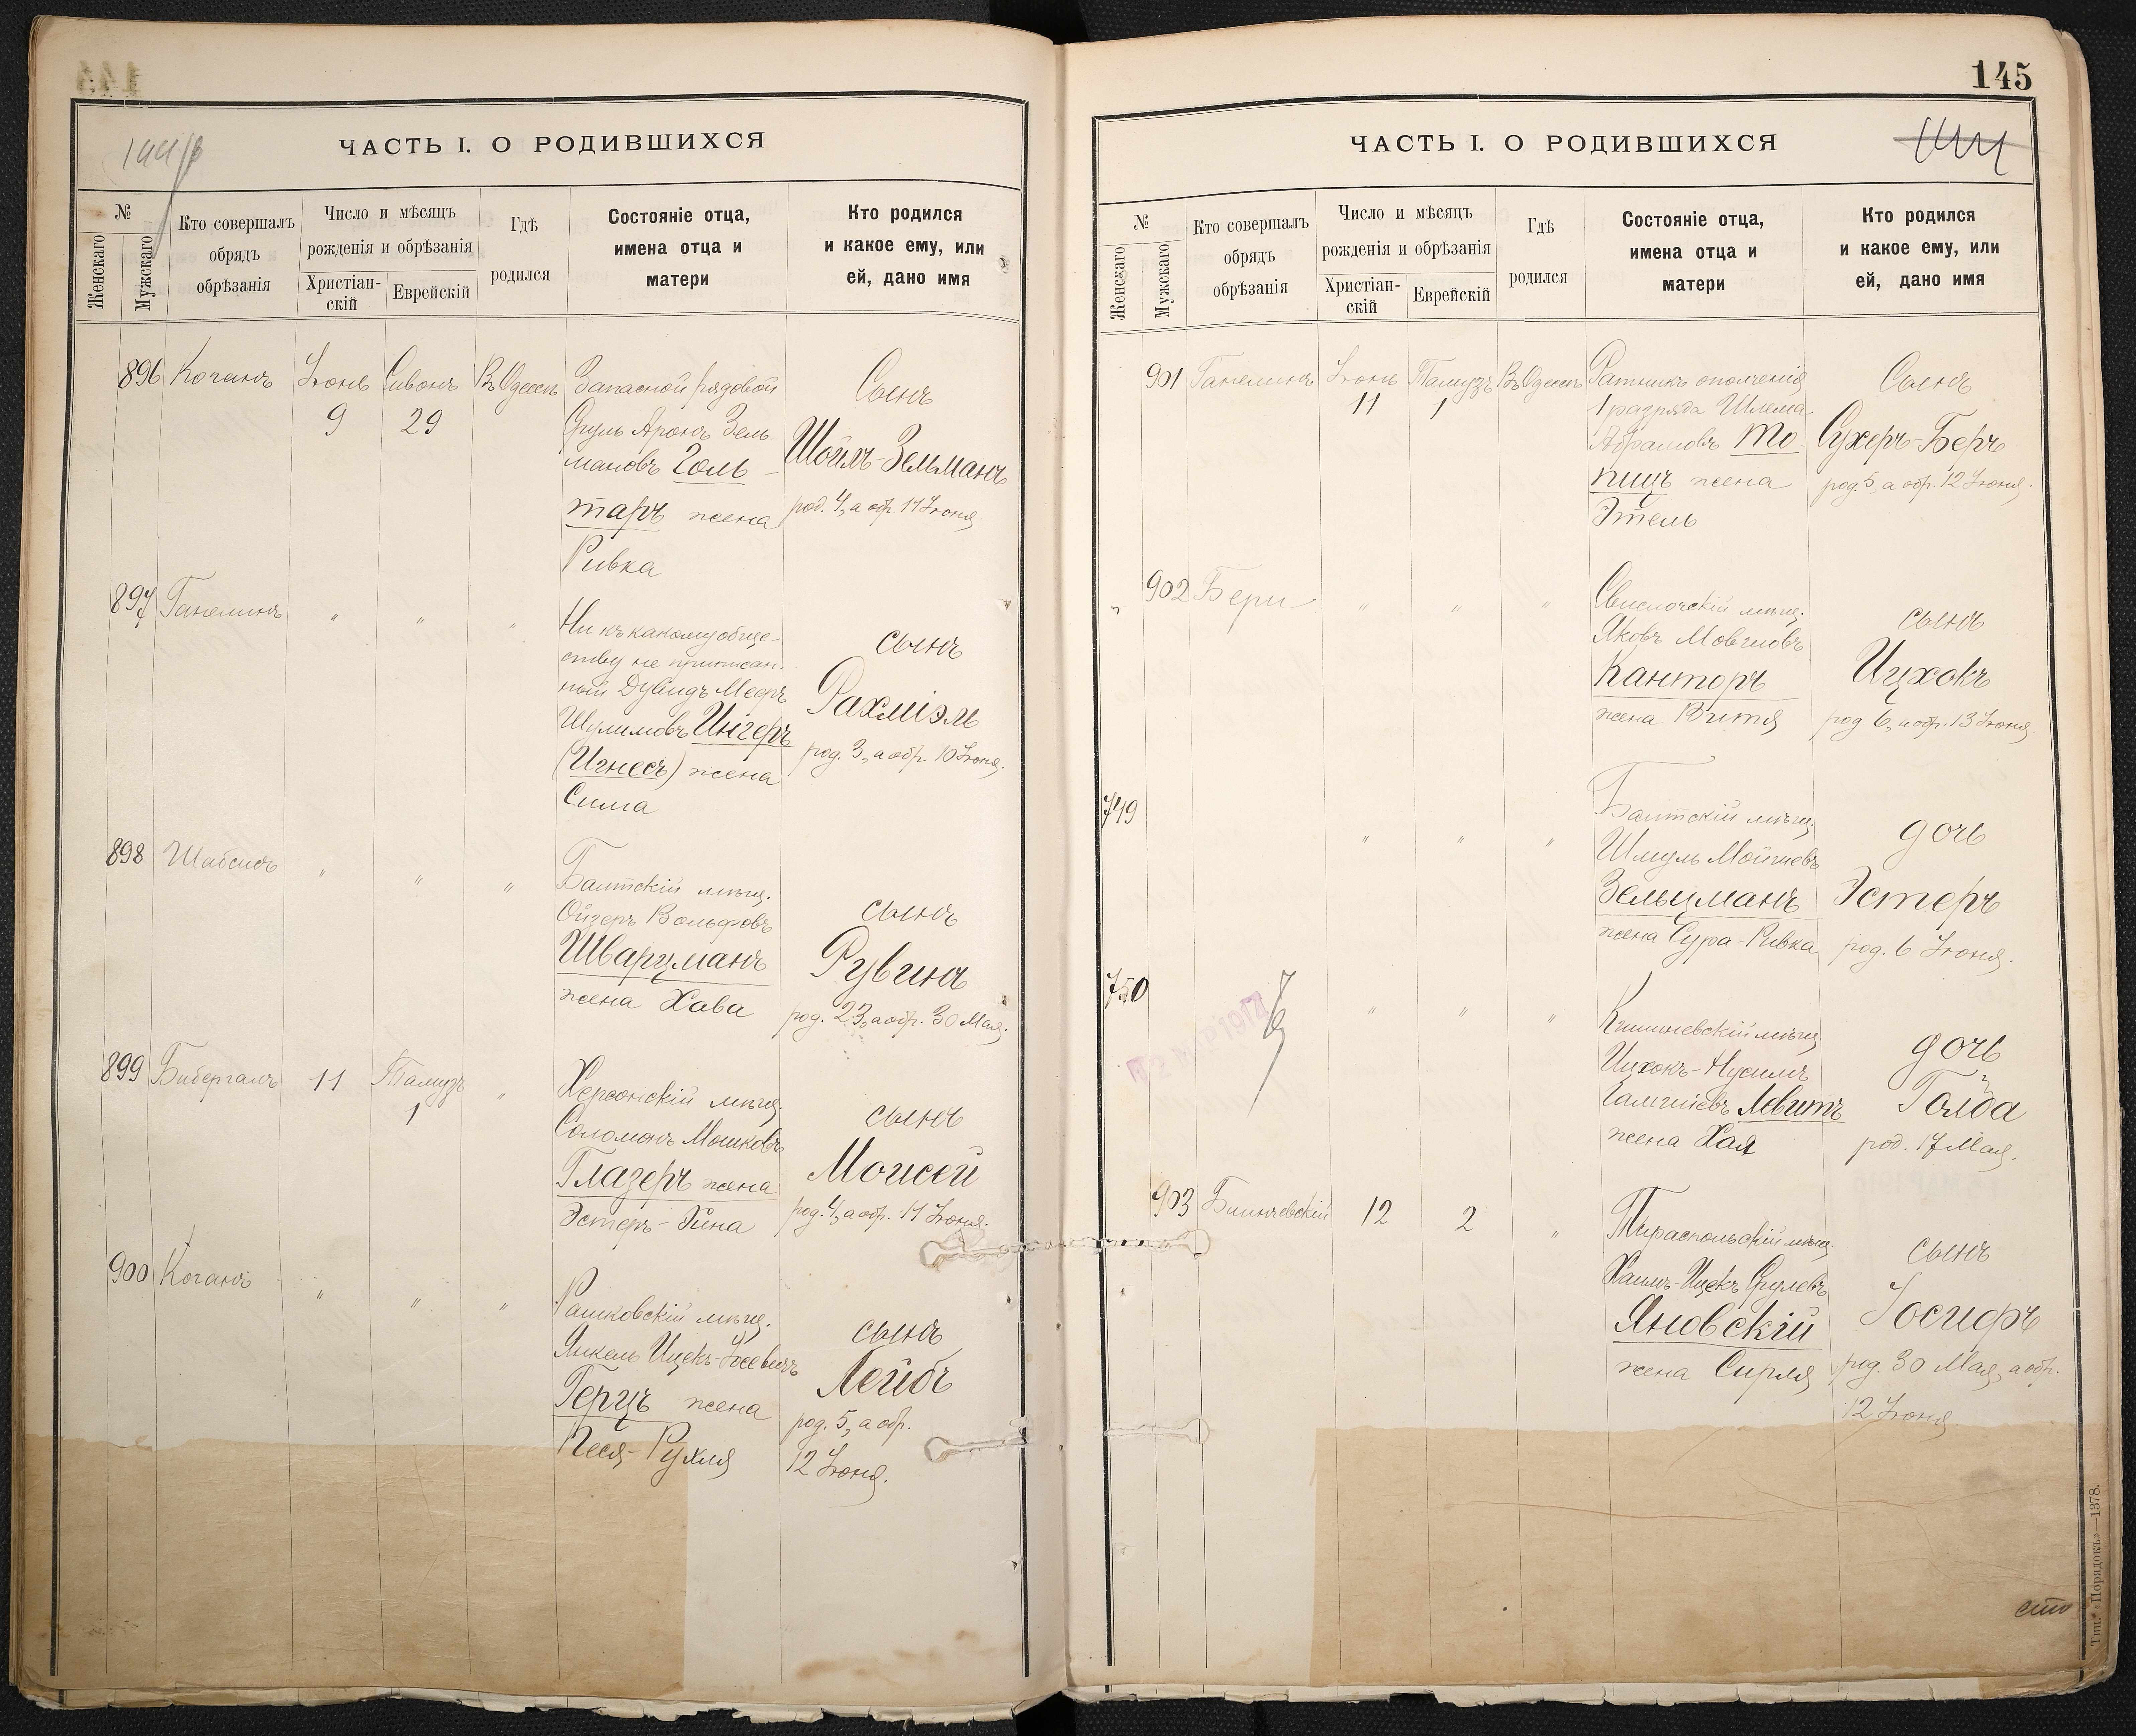 ЧАСТЬ I. О РОДИВШИХСЯ
№
Женскаго
Мужскаго
Кто совершалъ
обрядъ
обрѣзанія
Число и мѣсяцъ
рожденія и обрѣзанія
Христіан-
скій
Еврейскій
Гдѣ
родился
Состояніе отца,
имена отца и
матери
Кто родился
и какое ему, или
ей, дано имя
896 Коганъ Іюнь 9 Сивонъ 29 Въ Одессѣ
Запасной рядовой
Сруль Аронъ Зель-
мановъГоль-
таръ жена
Ривка
Сынъ
Шойлъ-Зельманъ
род. 4, а обр. 11 Іюня
897 Ганелинъ " " "
Ни къ какому обще-
ству не приписан-
ный Дувидъ Мееръ
Шулимовъ Ингеръ
(Игнесъ) жена
Сима
сынъ
Рахміэль
род. 3, а обр. 10 Іюня.
898 Шабсисъ " " "
Балтскій мѣщ.
Ойзеръ Вольфовъ
Шварцманъ
жена Хава
сынъ
Рувинъ
род. 23, а обр. 30 Мая.
899 Бибергалъ 11 Тамузъ 1 "
Херсонскій мѣщ.
Соломонъ Мошковъ
Глазеръ жена
Эстеръ-Эйна
сынъ
Моисей
род. 4, а обр. 11 Іюня.
900 Коганъ " " "
Рашковскій мѣщ.
Янкель Ицекъ-
Герцъ жена
Песя-Рухля
сынъ
Лейбъ
род. 5, а обр.
12 Іюня.
145
ЧАСТЬ I. О РОДИВШИХСЯ
№
Женскаго
Мужскаго
Кто совершалъ
обрядъ
обрѣзанія
Число и мѣсяцъ
рожденія и обрѣзанія
Христіан-
скій
Еврейскій
Гдѣ
родился
Состояніе отца,
имена отца и
матери
Кто родился
и какое ему, или
ей, дано имя
901 Ганелинъ Іюнь 11 Тамузъ 1 Въ Одессѣ
Ратникъ ополченія
1 разряда Шлема
Абрамовъ То-
пицъ жена
Этель
Сынъ
Сухеръ-Беръ
род. 5, а обр. 12 Іюня.
902 Бери " " "
Свислочскій мѣщ.
Яковъ Мовшовъ
Канторъ
жена Витя
сынъ
Ицхокъ
род. 6, а обр. 13 Іюня
749 " " "
Балтскій мѣщ.
Шмуль Мойшевъ
Зельцманъ
жена Сура-Ривка
дочь
Эстеръ
род. 6 Іюня.
750 " " "
Кишиневскій мѣщ.
Ицхокъ-Нусимъ
Левитъ
жена Хая
дочь
Голда
род. 17 Мая.
903 12 2 "
Тираспольскій мѣщ.
Хаимъ-Ицекъ Срулевъ
Яновскій
жена Сирля
сынъ
Іосифъ
род. 30 Мая, а обр.
12 Іюня
сто
Тип. «Порядокъ»—1378.